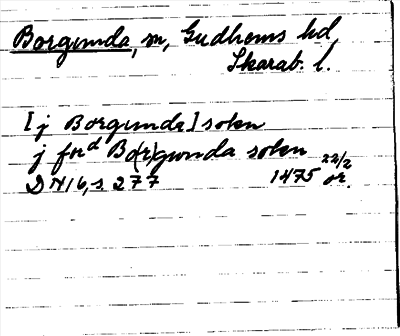 Borgunda, sn, Gudhems hd,
Skarab. l.
[j Borgunda] sokn
j ford Bo(r)gunda sokn
DN 16, s. 277 1475 22/2 or.